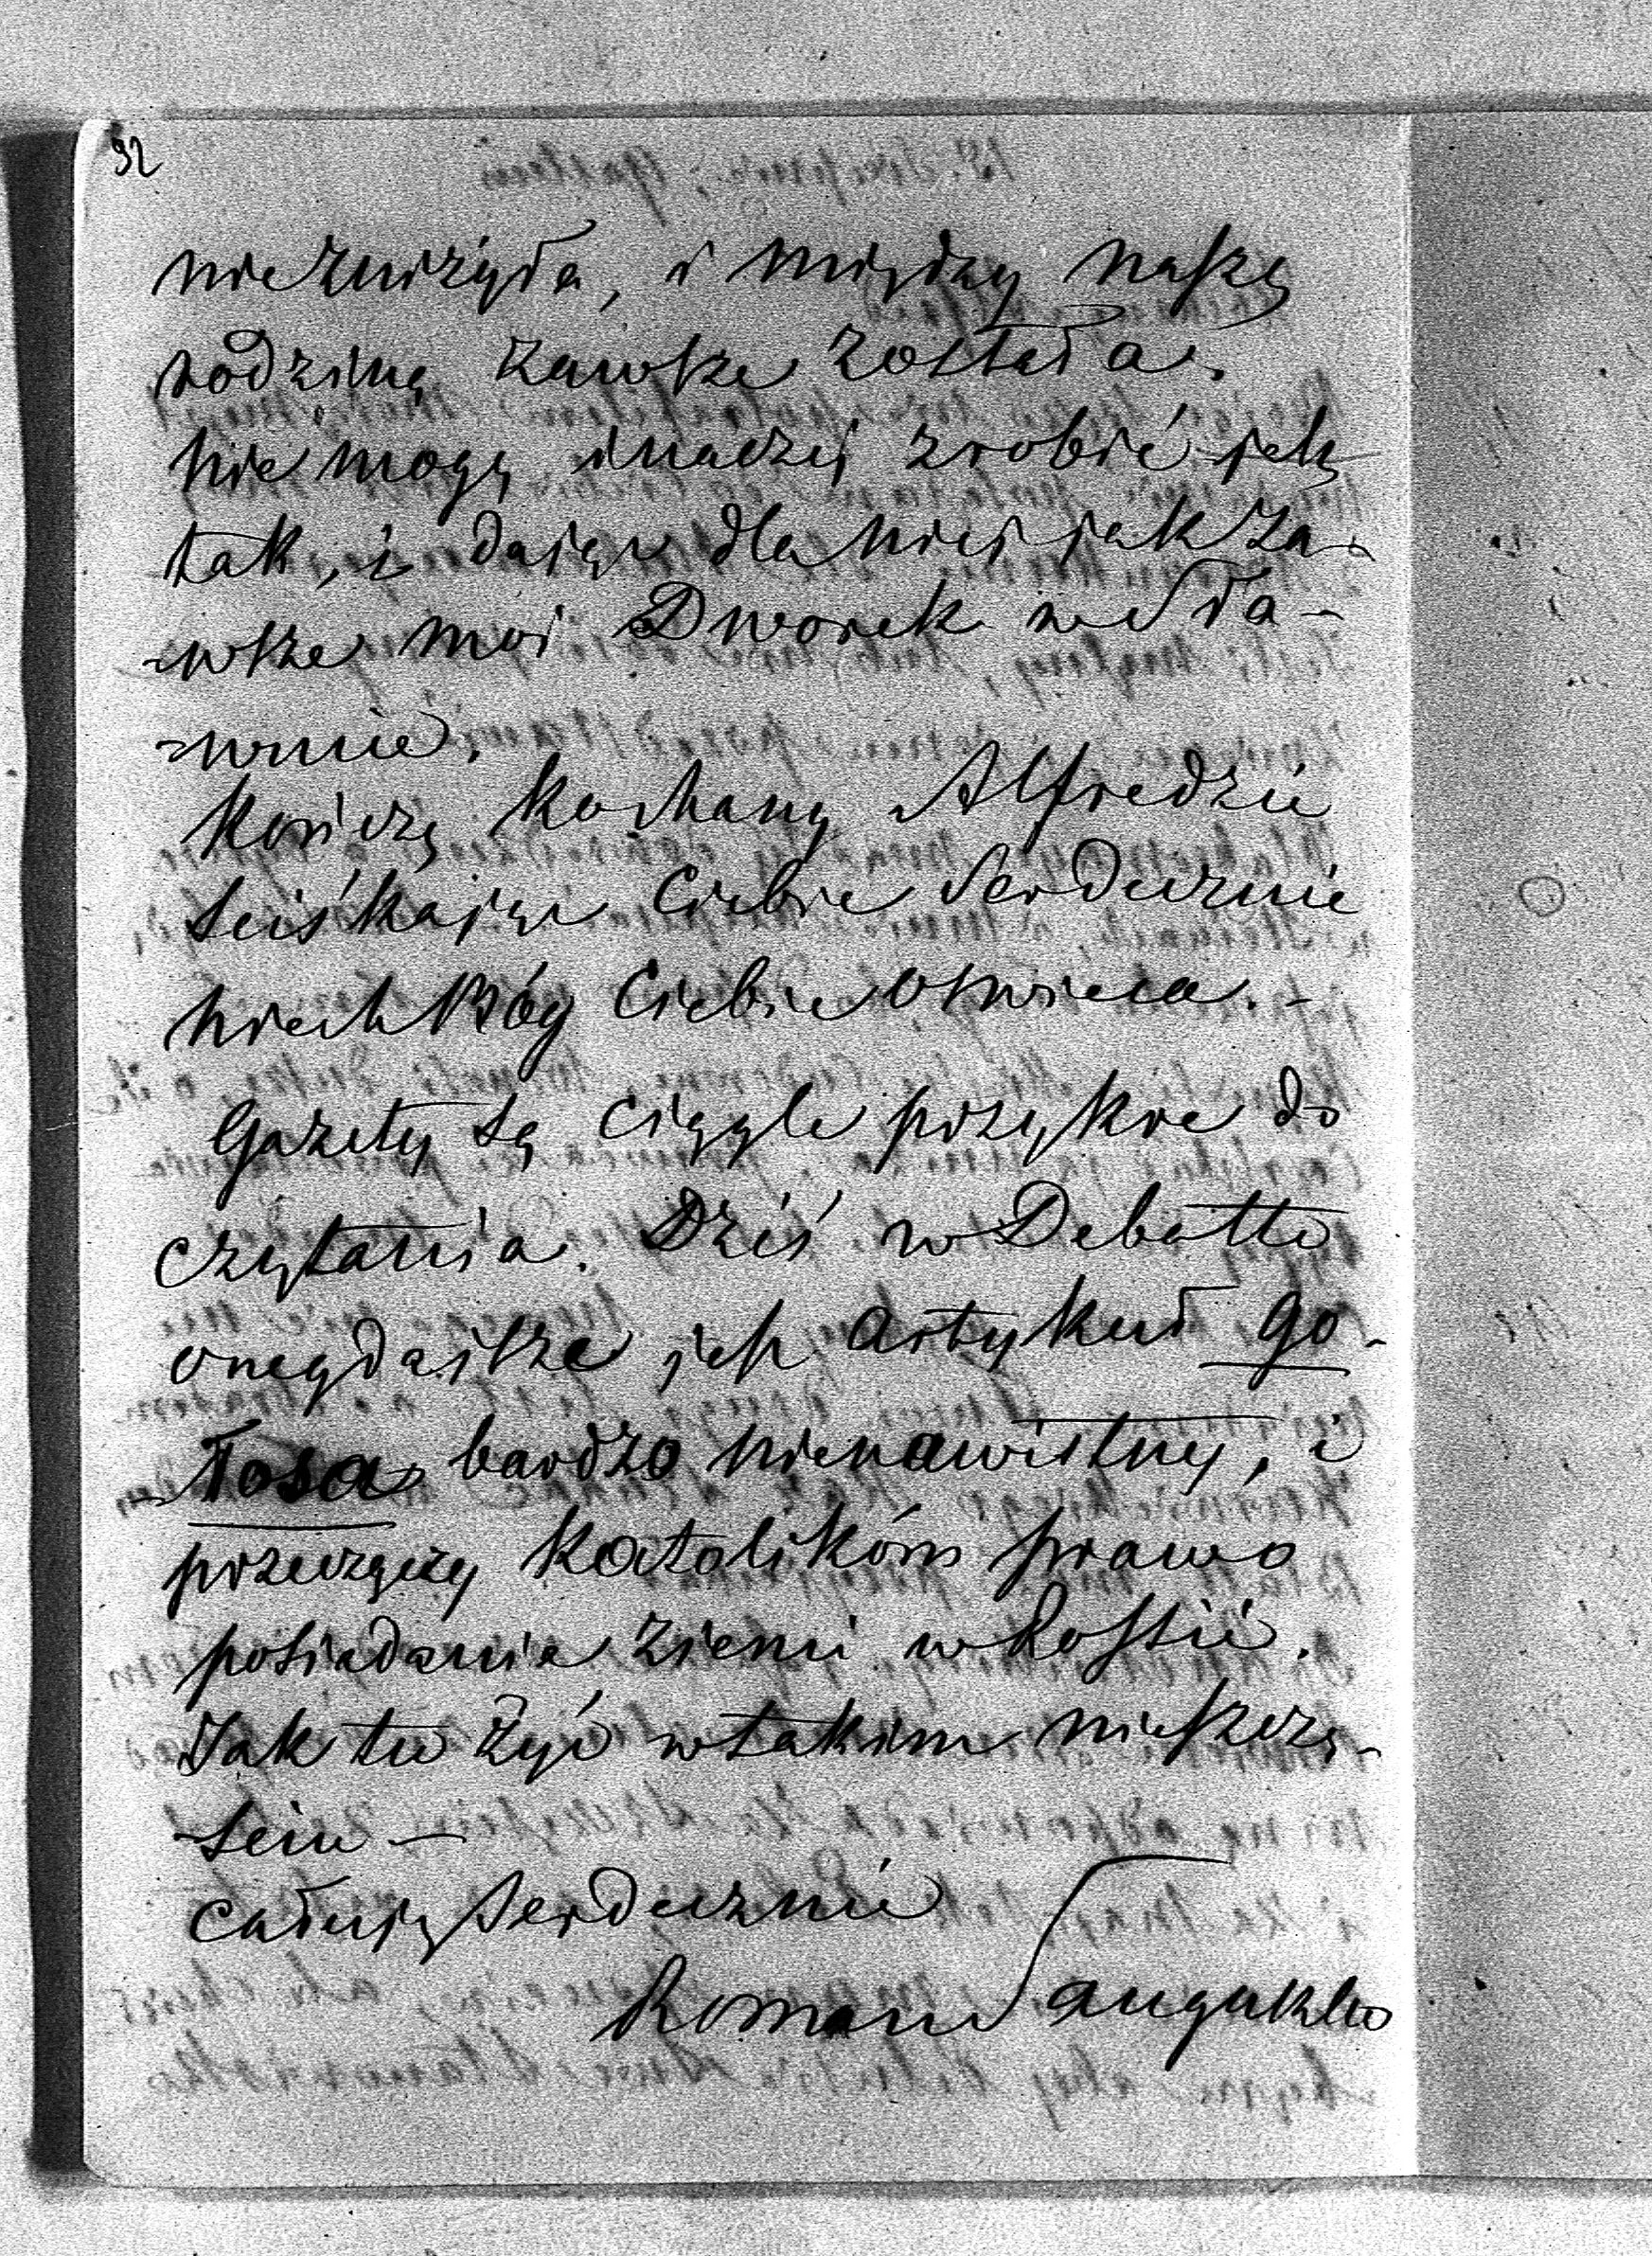 92
nie zniżyła, i między naszą
rodziną zawsze została.
Nie mogę inaczej zrobić jak
tak, i dając dla niej jak za-
-wsze moi Dworek w Sła-
-wucie.
Kończę kochany Alfredzie
sciśkając Ciebie serdecznie
niech Bóg Ciebie oswieca. -
Gazety są ciągle przykre do
czytania. Dziś w Debatte
onegdajsze jest artykuł go-
-łosa bardzo nienawistny, i
przeczący Katolikom prawo
posiadania ziemi w Rossii.
Jak tu żyć w takim nieszczę-
-sciu —
Całuję serdecznie
Roman Sanguszko